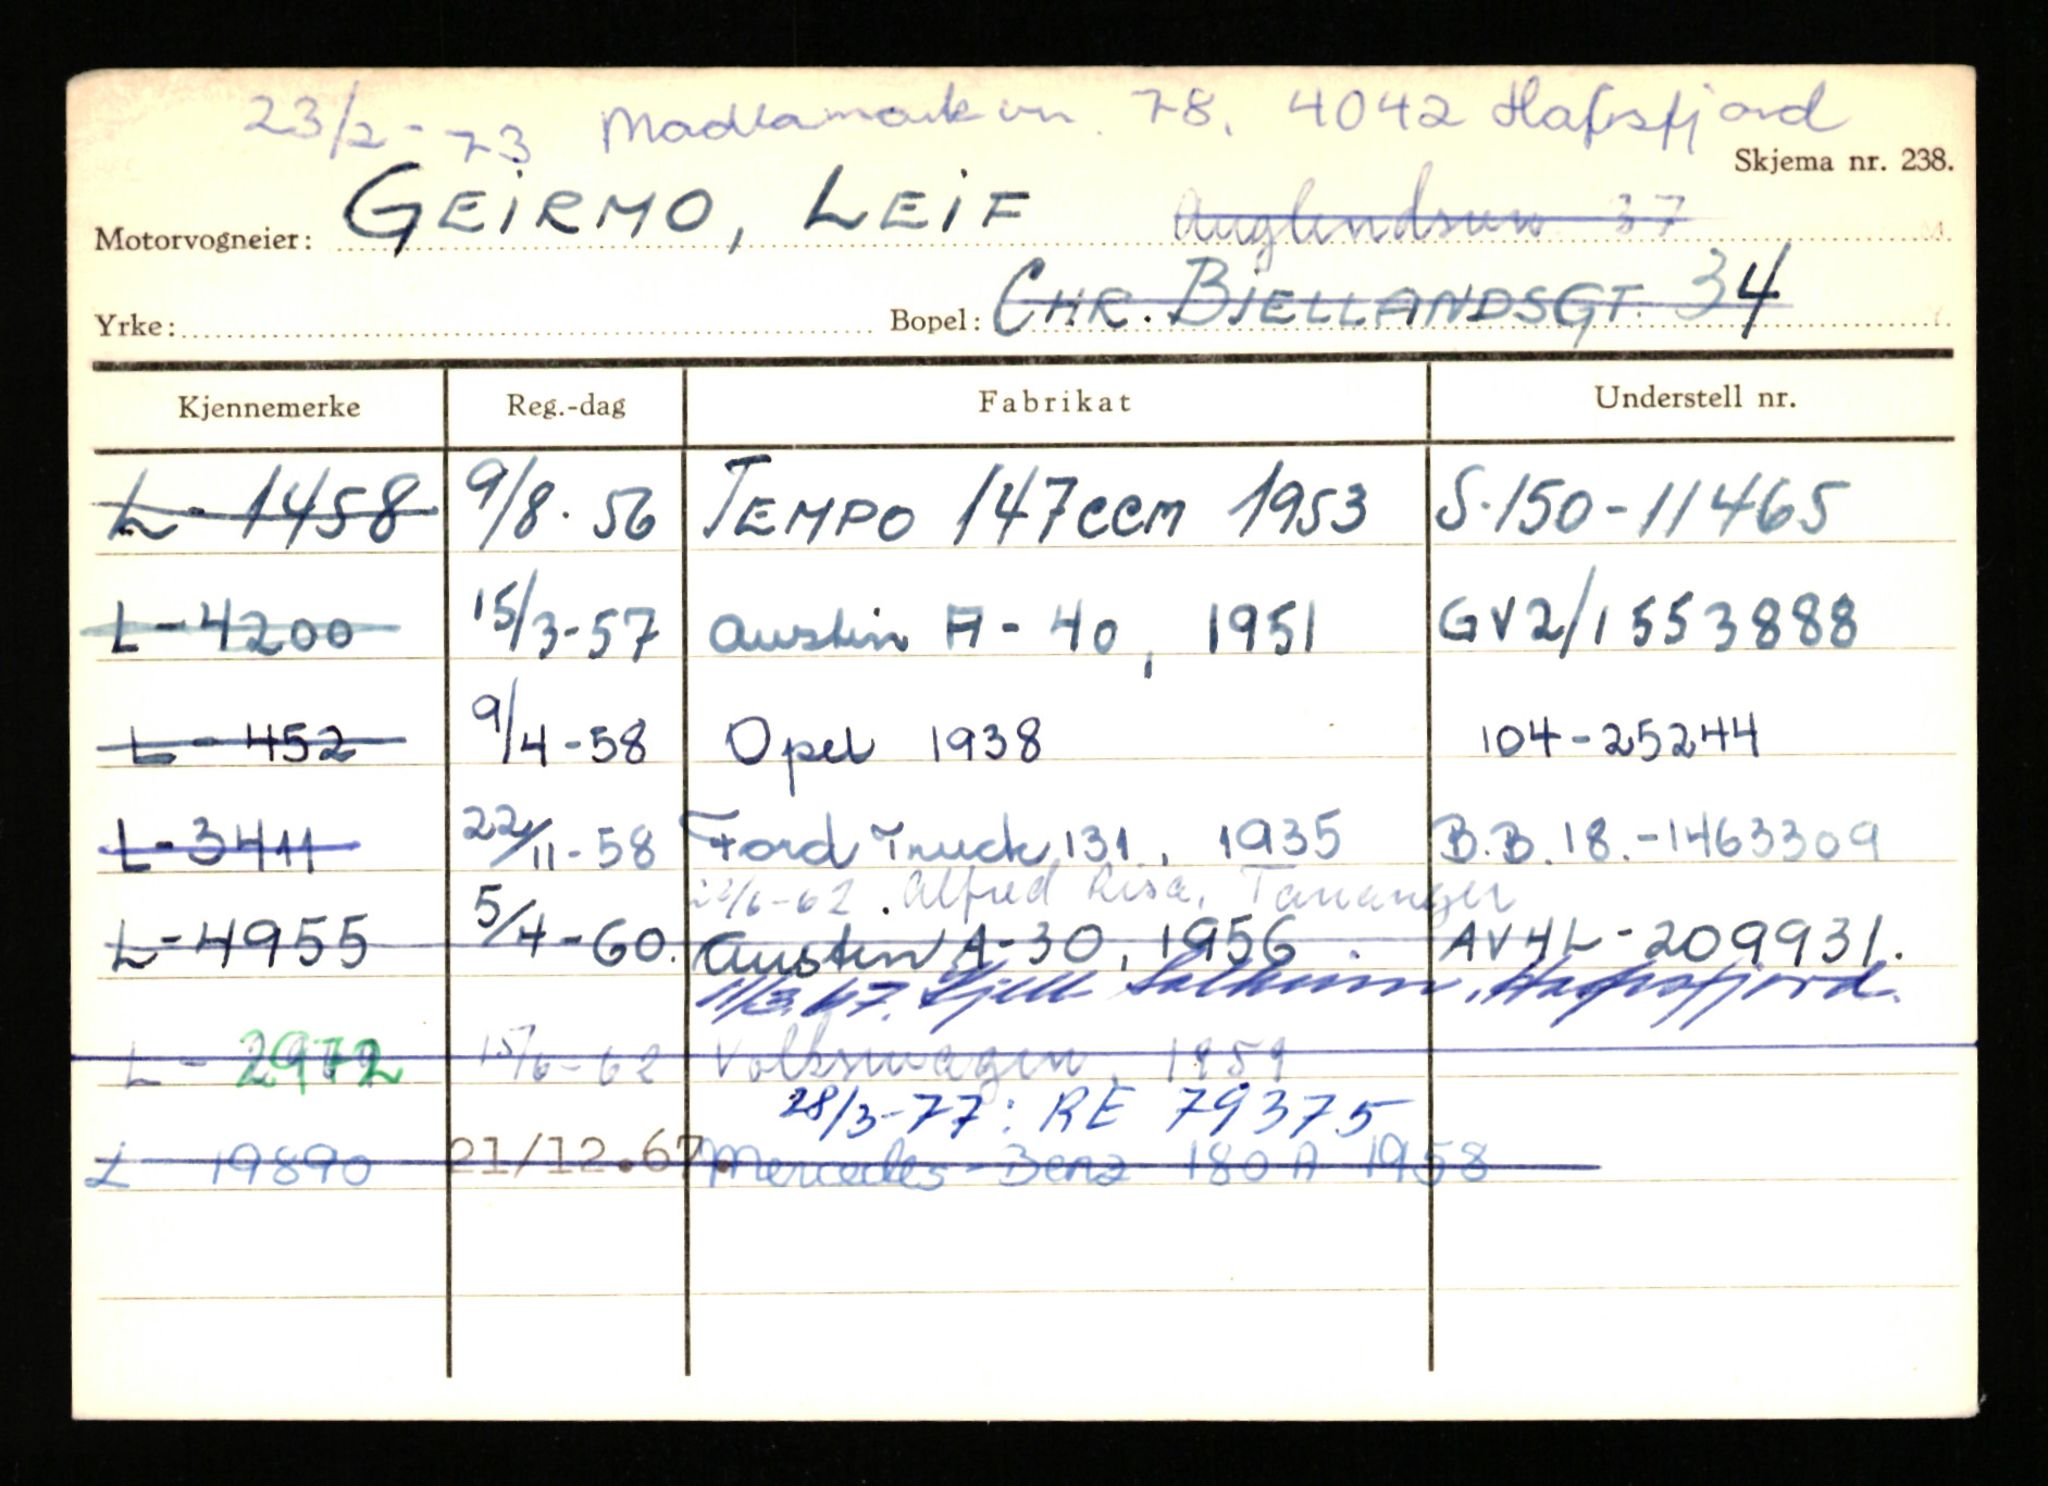 23/2-73 Madlamarkvn. 78, 4042 Hafrsfjord
Skjema nr. 238.
Motorvogneier: GEIRMO, LEIF 37
Yrke: Bopel: CHR. BJELLANDSGT. 34
Kjennemerke Reg.-dag Fabrikat Understell nr.
L-1458 9/8. 56 TEMPO 147 CCM 1953 S.150-11465
L-4200 15/3-57 Austin A-40, 1951 GV2/1553888
L-452 9/4-58 Opel 1938 104-25244
L-3411 22/11-58 Ford Truck 131, 1935 B.B. 18.-1463309
/6-62. Alfred Risa, Tananger
L-4955 5/4-60. Austin A-30, 1956 AV4L-209931.
11/3.67. Kjell Solheim, Hafrsfjord.
L-2972 15/6-62 Volkswagen, 1959
28/3-77: RE 79375
L 19890 21/12.67. Mercedes-Benz 180 A 1958